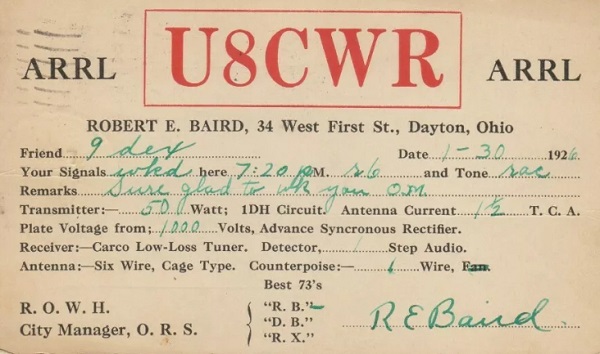 ARRL U8CWR ARRL
ROBERT E. BAIRD, 34 West First St., Dayton, Ohio
Friend 9 dex Date 1-30 1926
Your Signals wkd here 7:20 P.M. r6 and Tone rac
Remarks Sure glad to wk you O.M
Transmitter:— 50 Watt; 1DH Circuit. Antenna Current 1½ T. C. A.
Plate Voltage from; 1000 Volts, Advance Syncronous Rectifier.
Receiver:—Carco Low-Loss Tuner. Detector, 1 Step Audio.
Antenna:—Six Wire, Cage Type. Counterpoise:— 1 Wire, Fan.
Best 73's
R. O. W. H. "R. B."
City Manager, O. R. S. "D. B."
"R. X."
R E Baird.